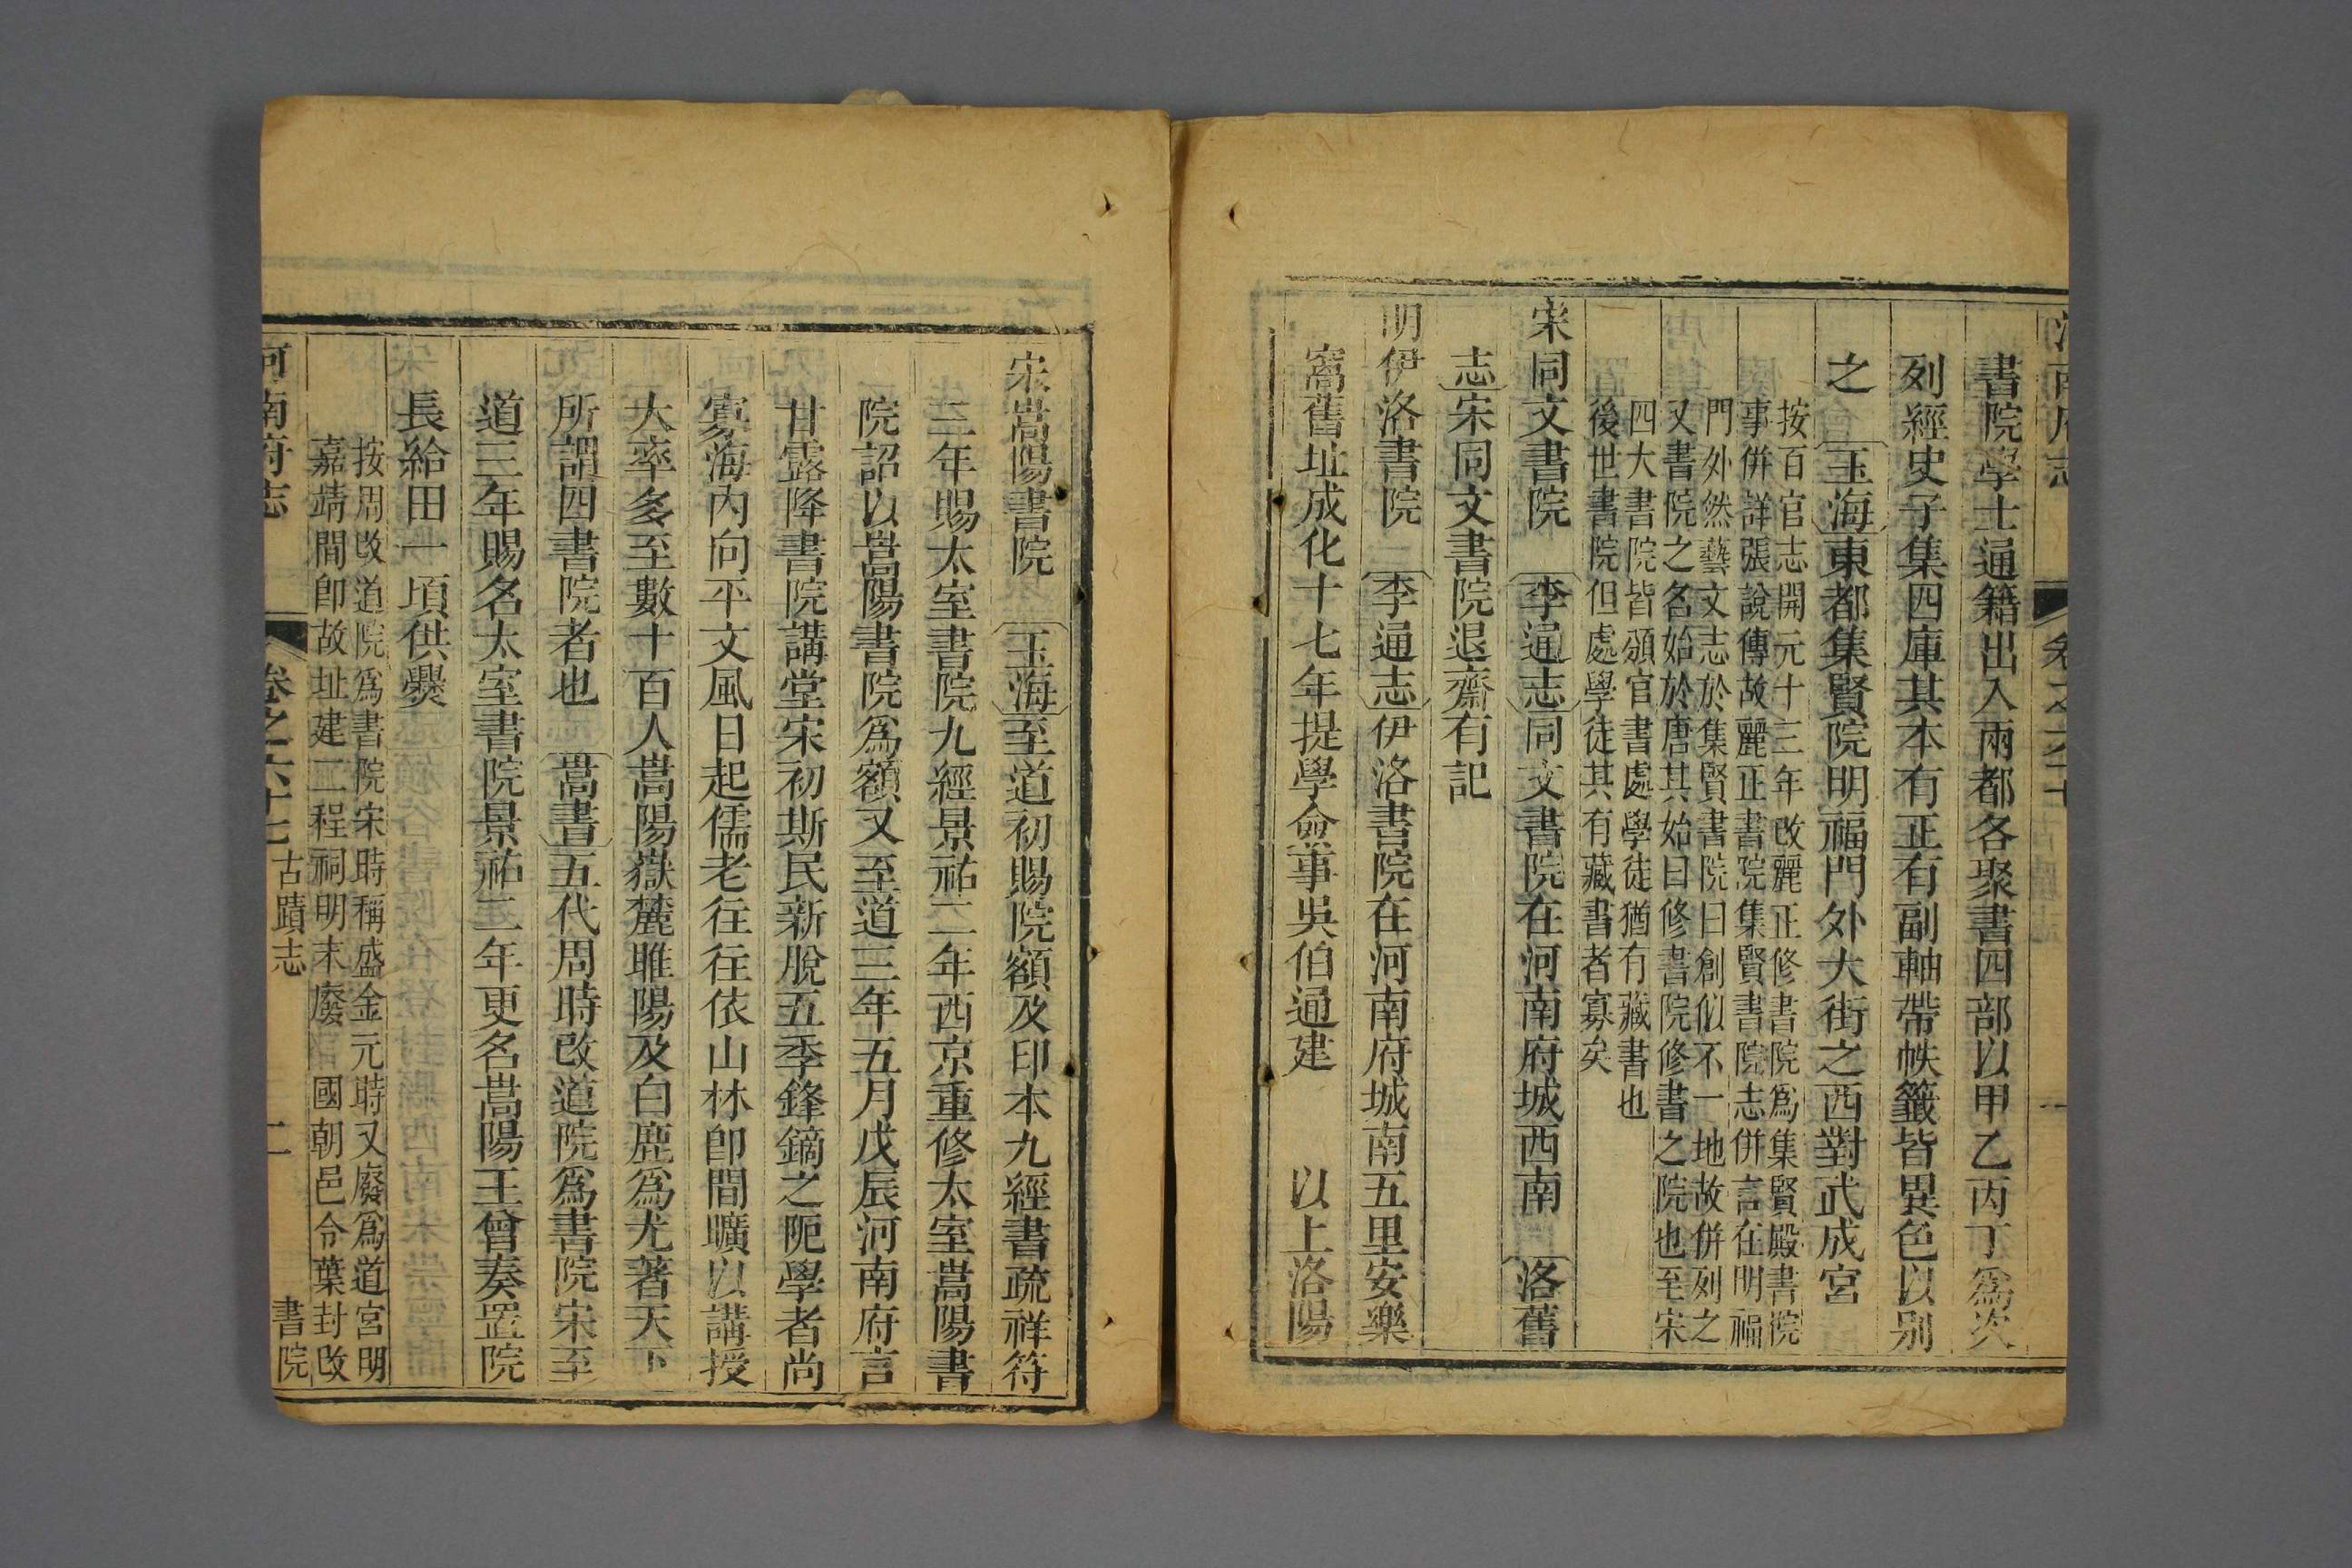 書院學士通籍出入兩都各聚書四部以甲乙丙丁爲次
列經史子集四庫其本有正有副軸帶帙籤皆異色以别
之 玉海東都集賢院明福門外大街之西對武成宮
按百官志開元十三年改麗正修書院爲集賢殿書院
事併詳張說傳故麗正書院集賢書院志併言在明福
門外然藝文志於集賢書院曰創似不一地故併列之
又書院之名始於唐其始曰修書院修書之院也至宋
四大書院皆頒官書處學徒猶有藏書也
後世書院但處學徒其有藏書者寡矣
宋同文書院 李通志同文書院在河南府城西南 洛舊
志宋同文書院退齋有記
明伊洛書院 李通志伊洛書院在河南府城南五里安樂
窩舊址成化十七年提學僉事吳伯通建 以上洛陽
宋嵩陽書院 玉海至道初賜院額及印本九經書疏祥符
三年賜太室書院九經景祐二年西京重修太室嵩陽書
院詔以嵩陽書院爲額又至道三年五月戊辰河南府言
甘露降書院講堂宋初斯民新脫五季鋒鏑之阨學者尚
寡海內向平文風日起儒老往往依山林卽間曠以講授
大率多至數十百人嵩陽嶽麓睢陽及白鹿爲尤著天下
所謂四書院者也 嵩書五代周時改道院爲書院宋至
道三年賜名太室書院景祐二年更名嵩陽王曾奏置院
長給田一頃供爨
按周改道院爲書院宋時稱盛金元時又廢爲道宮明
嘉靖間卽故址建二程祠明末廢 國朝邑令葉封改
河南府志 卷之六十七 古蹟志 書院 二